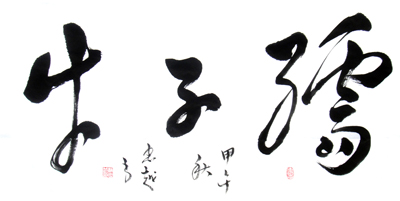 孺子牛
甲午
秋